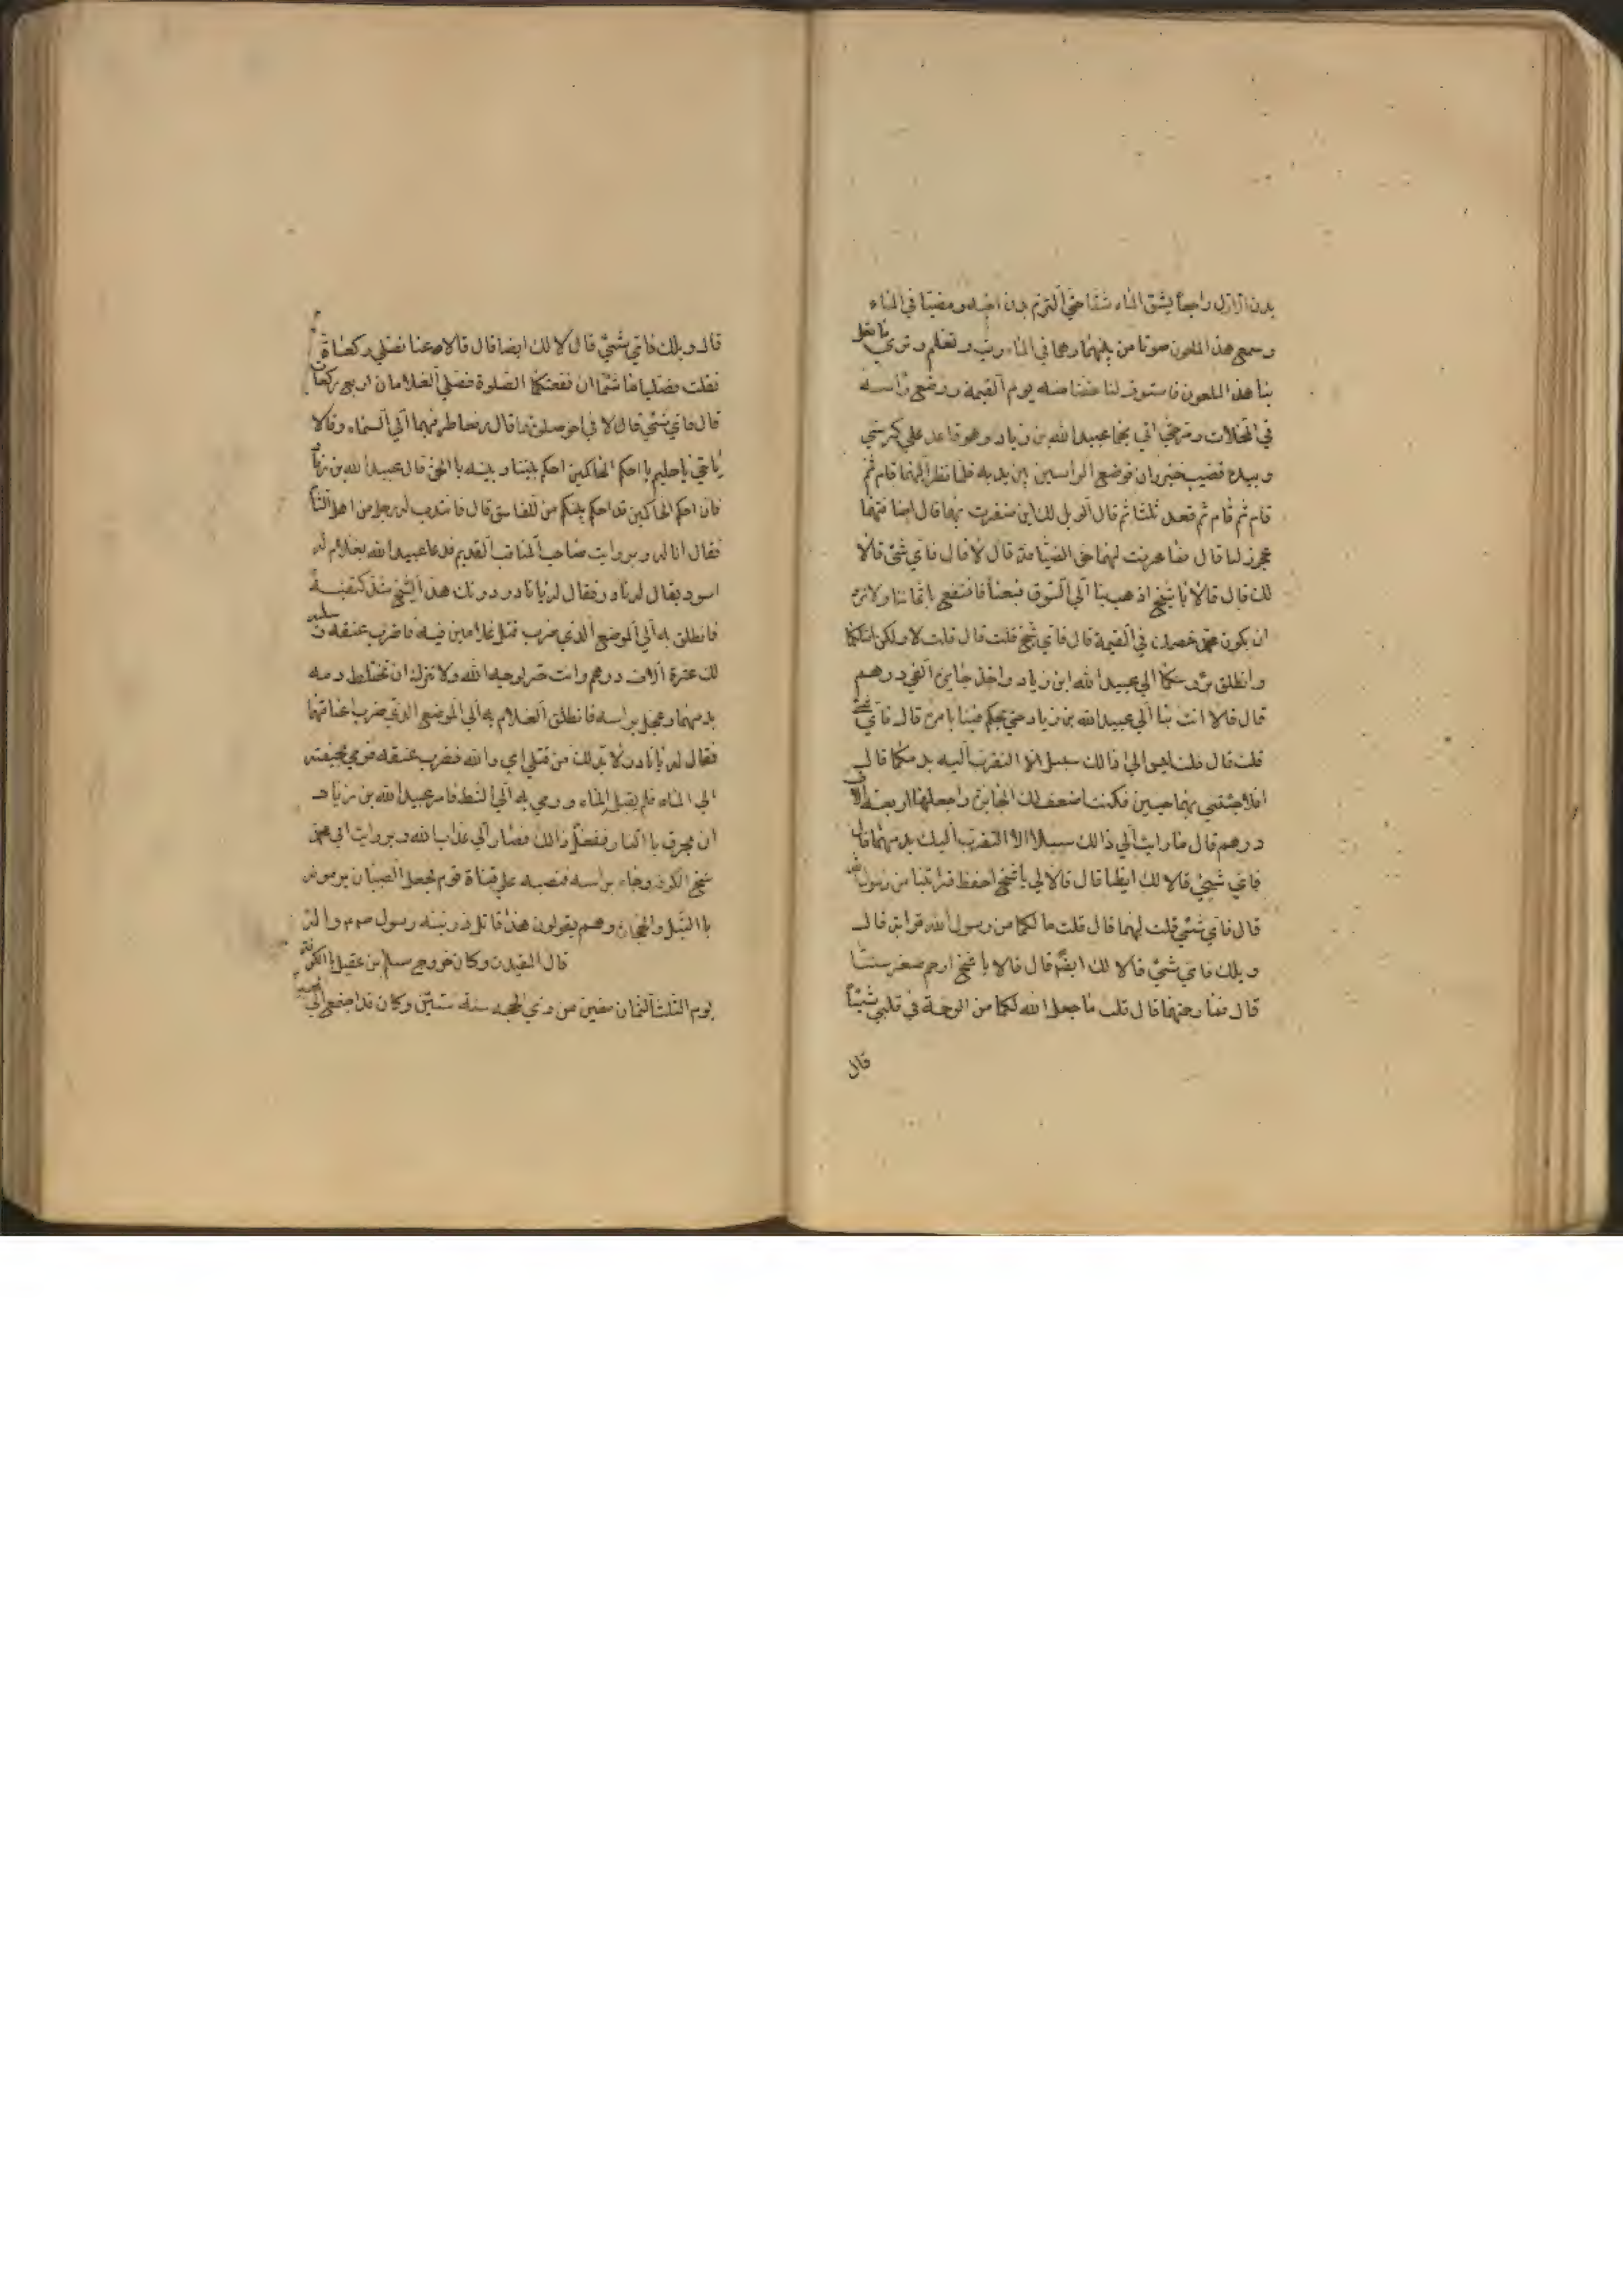 بدن الاول راجعاً يشق الماء شقا حتى التزم بدن اخيه ومضيا في الماء
وسمع هذا الملعون صوتا من بينهما وهما في الماء رب تعلم وترى ما فعل
بنا هذا الملعون فاستوف لنا حقنا منه يوم القيمة ووضع راسيه
في المخلات ومر حتى اتى بهما عبيد الله بن زياد وهو قاعد على كرسي
وبيده قضيب خيزران فوضع الراسين بين يديه فلما نظر اليهما قام ثم
قام ثم قام ثم قعد ثلثا ثم قال الويل لك اين ظفرت بهما قال اضافتهما
عجوز لنا قال فما عرفت لهما حق الضيافة قال لا قال فاي شئ قالا
لك قال قالا يا شيخ اذهب بنا الى السوق فبعنا فانتفع باثماننا ولا ترد
ان يكون محمد خصمك في القيمة قال فاي شئ قلت قال قلت لا ولكن اقتلكما
وانطلق برؤسكما الى عبيد الله ابن زياد واخذ جايزة الفي درهم
قال قالا ائت بنا الى عبيد الله بن زياد حتى يحكم فينا بامره قال فاي شئ
قلت قال قلت ليس الى ذالك سبيل الا التقرب اليه بدمكما قال
افلا جئتني بهما حيين فكنت اضعف لك الجايزة واجعلها اربعة الاف
درهم قال ما رايت الى ذالك سبيلا الا التقرب اليك بدمهما قال
فاي شيئ قالا لك ايظا قال قالا لي يا شيخ احفظ قرابتنا من رسول الله
قال فاي شئ قلت لهما قال قلت ما لكما من رسول الله قرابة قال
ويلك فاي شئ قالا لك ايضا قال قالا يا شيخ ارحم صغر سننا
قال فما رحمتهما قال قلت ما جعل الله لكما من الرحمة في قلبي شيئاً
قال
قال ويلك فاي شئ قالا لك ايضا قال قالا دعنا نصلي ركعات
فقلت فصليا ما شئتما ان نفعتكما الصلوة فصلى الغلامان اربع ركعات
قال فاي شئ قالا في اخر صلوتهما قال رفعا طرفيهما الى السماء وقالا
يا حي يا حليم يا احكم الحاكمين احكم بيننا وبينه بالحق قال عبيد الله بن زياد
فان احكم الحاكمين قد احكم بينكم من للفاسق قال فانتدب له رجل من اهل الشام
فقال انا له وبروايت صاحب المناقب القديم فدعا عبيد الله بغلام له
اسود يقال له نادر فقال له يا نادر دونك هذا الشيخ شد كتفيه
فانطلق به الى الموضع الذي ضرب قتل غلامين فيه فاضرب عنقه وسلبه
لك عشرة الاف درهم وانت حر لوجه الله ولا تترك ان تختلط دمه
بدمهما وعجل براسه فانطلق الغلام به الى الموضع الذي ضرب اعناقهما
فقال له يا نادر لا بد لك من قتلي اي والله فضرب عنقه فرمي بجيفته
الى الماء فلم يقبل الماء ورمي به الى الشط فامر عبيد الله بن زياد
ان يحرق با النار ففعل ذالك فصار الى عذاب الله وبروايت ابي محمد
شيخ الكوفه وجاء براسه فنصبه على قناة فجعل الصبيان يرمونه
با النبل والحجاره وهم يقولون هذا قاتل ذريته رسول
قال المفيد وكان خروج مسلم بن عقيل با الكوفة
يوم الثلثا لثمان مضين من ذي الحجه سنة ستين وكان قد اجتمع الى